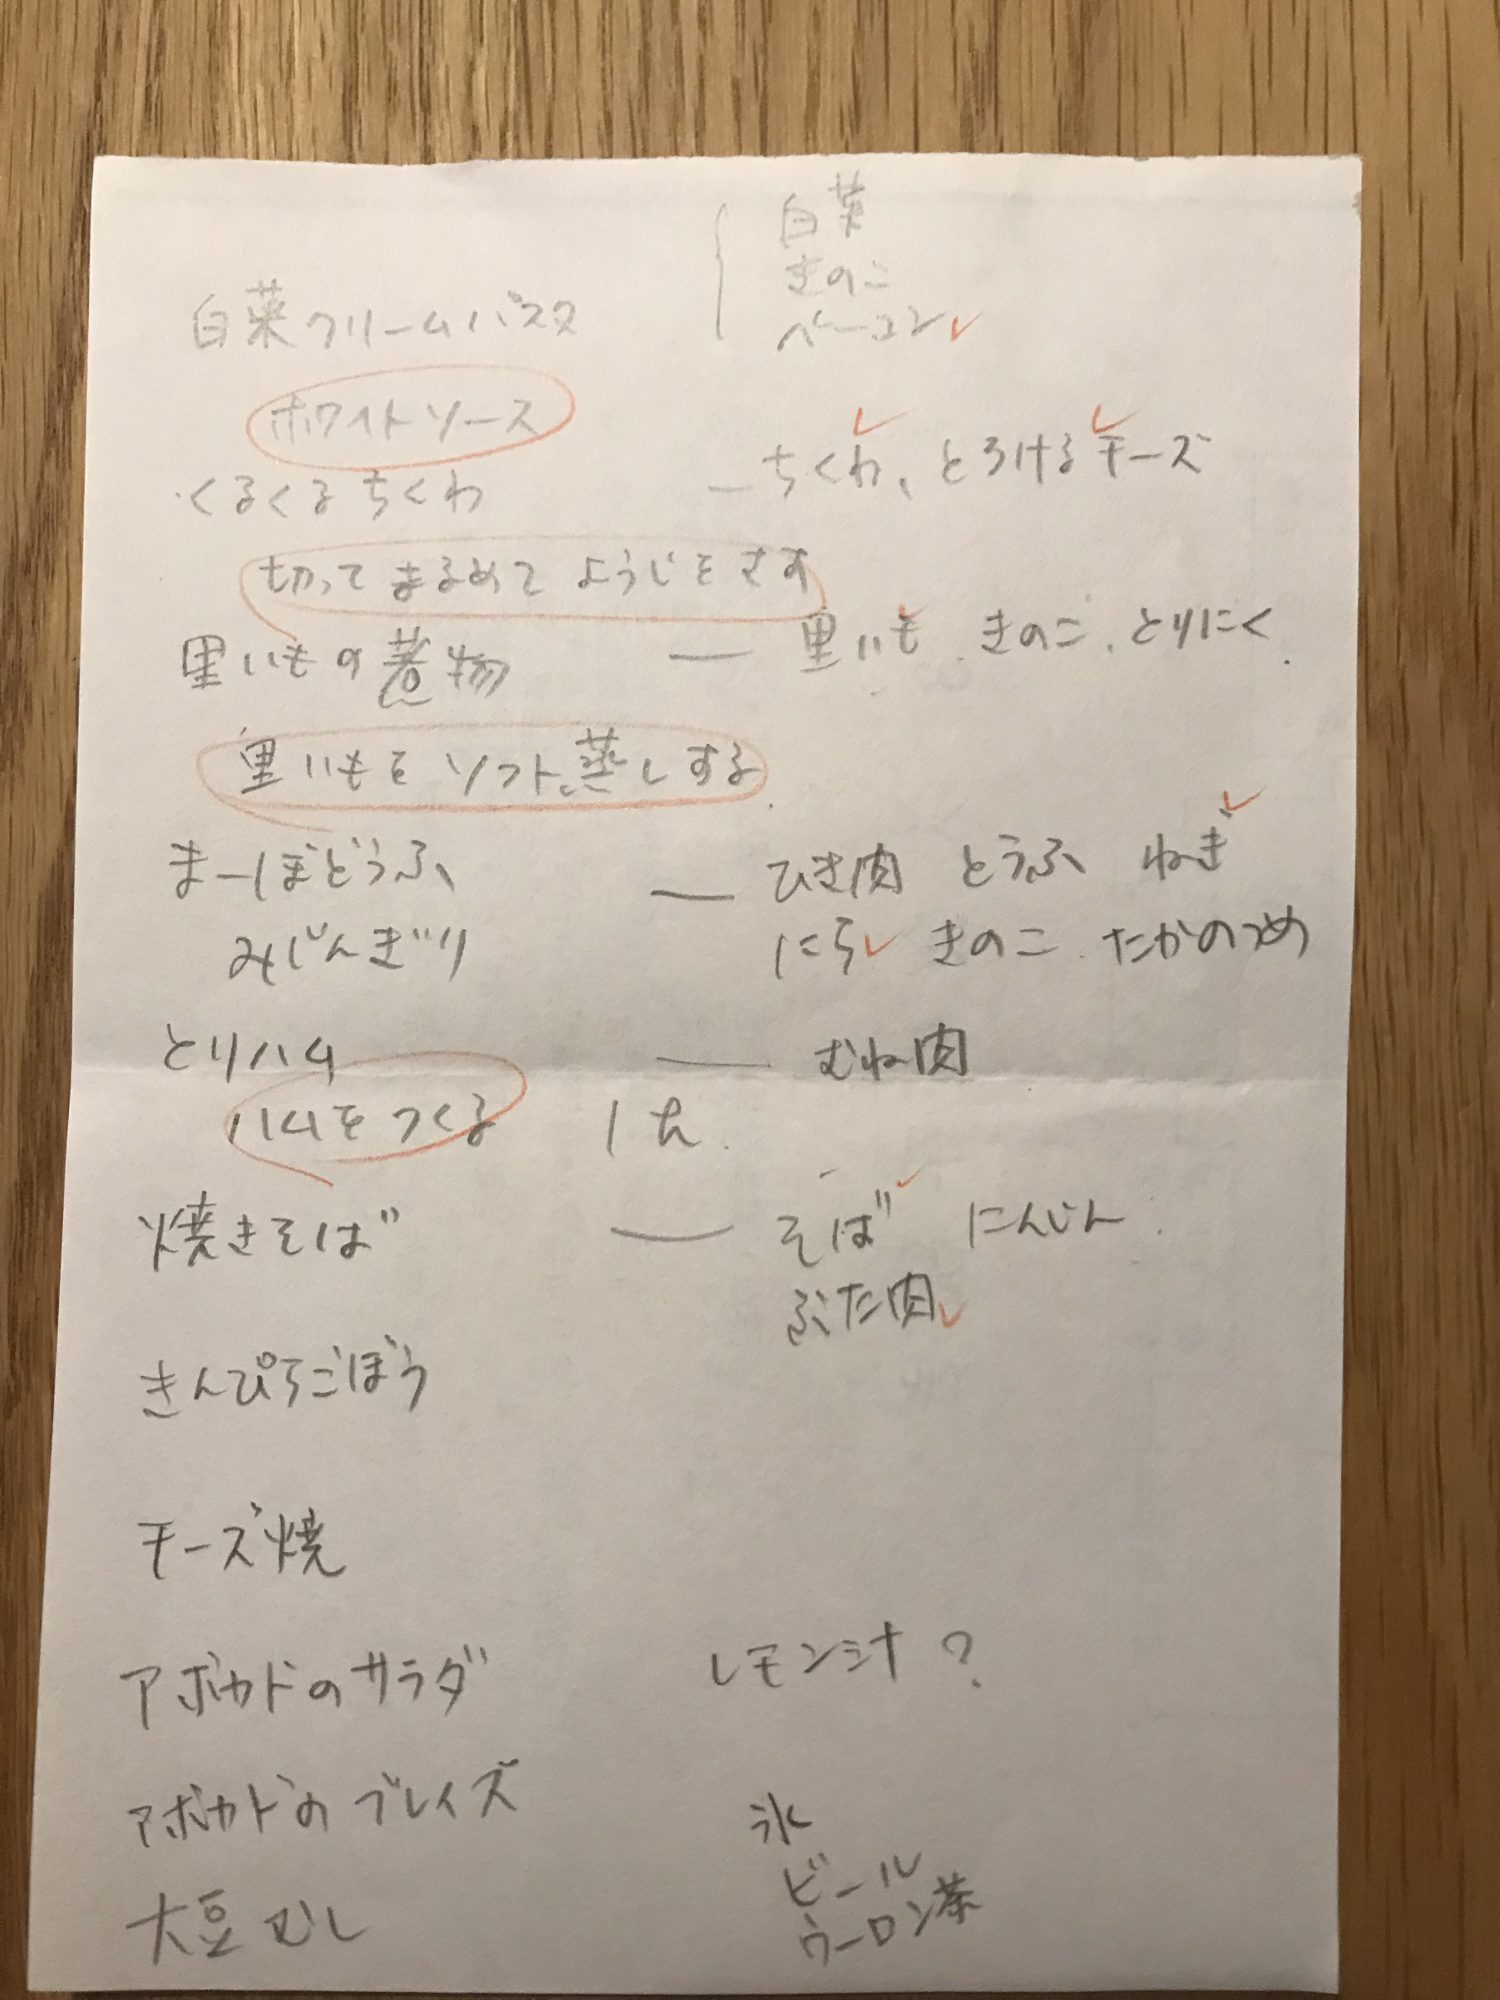 白菜
きのこ
白菜クリームパスタ ベーコン
ホワイトソース
くるくるちくわ ー ちくわ、とろけるチーズ
切ってまるめてようじをさす
里いもの煮物 ー 里いも、きのこ、とりにく
里いもをソフト蒸しする
まーぼどうふ ー ひき肉 とうふ ねぎ
みじんぎり にら きのこ たかのつめ
とりハム ー むね肉
ハムをつくる
焼きそば ー そば にんじん
ぶた肉
きんぴらごぼう
チーズ焼
アボカドのサラダ レモン汁?
アボカドのブレイズ 氷
ビール
大豆むし ウーロン茶